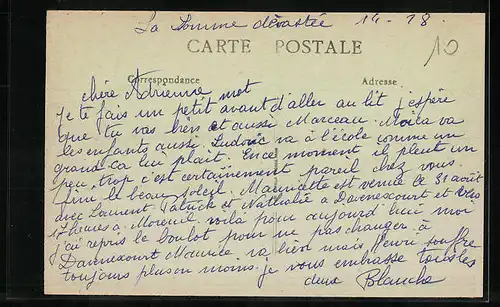 La Somme dévastée 14-18.
CARTE POSTALE
10
Correspondance
Adresse
chère Adrienne
Je te fais un petit mot avant d'aller au lit j'espère
que tu vas bien et aussi Marceau. Moi la va
les enfants aussi Ludovic va à l'école comme un
grand ca lui plait. En ce moment il pleut un
peu trop c'est certainement pareil chez vous.
fini le beau soleil. Mauricette est venue le 31 août
avec Laurent Patrick et Nathalie à Davenescourt et
17 heures à Moreuil voilà pour aujourd'hui moi
j'ai repris le boulot pour ne pas changer à
Davenescourt Maurice va bien mais Henri souffre
toujours plus ou moins. je vous embrasse tous les
deux Blanche